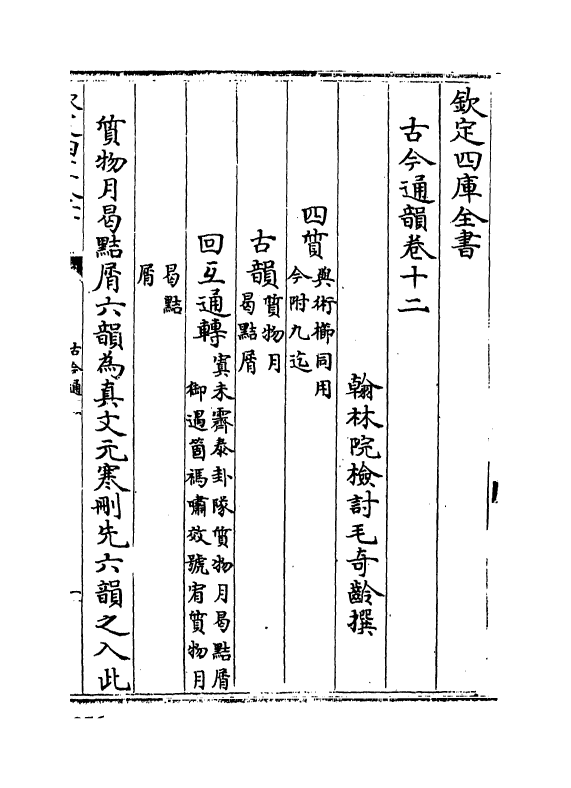 欽定四庫全書
古今通韻卷十二
翰林院檢討毛奇齡撰
四質與術櫛同用
今附九迄
古韻質物月
曷黠屑
回互通轉寘未霽泰卦隊質物月曷黠屑
御遇箇禡嘯效號宥質物月
曷黠
屑
質物月曷黠屑六韻為真文元寒刪先六韻之入此
古今通
一